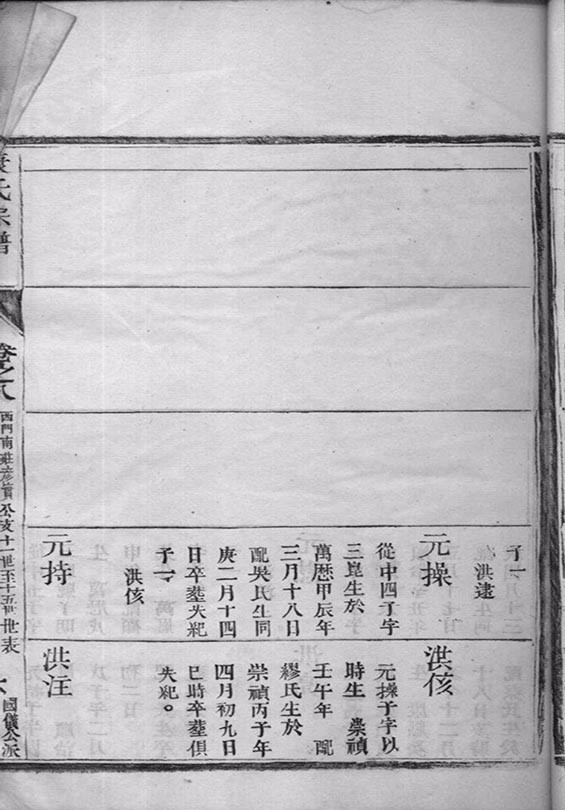 子一
洪逵
元操
從中四子字
三崑生於
萬曆甲辰年
三月十八日
配吳氏生同
庚二月十四
日卒塟失紀
子一
洪侅
元持
洪侅
元操子字以
時生 崇禎
壬午年 配
繆氏生於
崇禎丙子年
四月初九日
巳時卒塟俱
失紀。
洪注
氏宗譜
卷之八
西門南莊
公支十一世至十五世世表
國儀公派